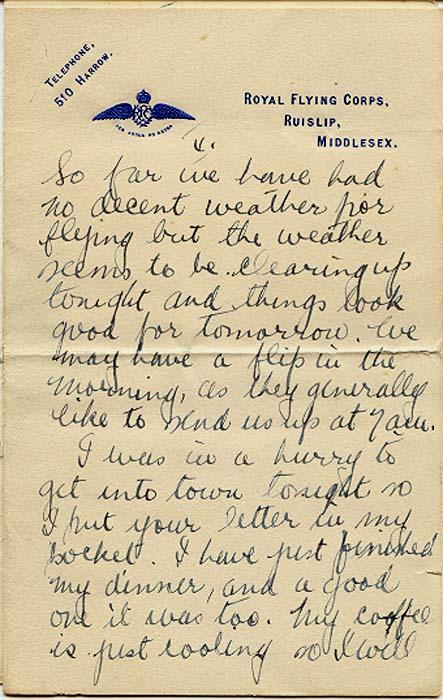 TELEPHONE,
510 HARROW.
ROYAL FLYING CORPS,
RUISLIP,
MIDDLESEX.
RFC
PER ARDUA AD ASTRA
4.
So far we have had
no decent weather for
flying but the weather
seems to be clearing up
tonight and things look
good for tomorrow. We
may have a flip in the
morning, as they generally
like to send us up at 7 a.m.
I was in a hurry to
get into town tonight so
I put your letter in my
pocket. I have just finished
my dinner, and a good
one it was too. My coffee
is just cooling so I will